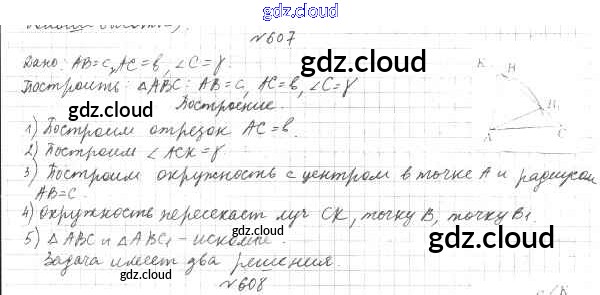 gdz.cloud
№607
Дано: AB=c, AC=b, ∠C=γ.
Построить: △ABC: AB=c, AC=b, ∠C=γ
Построение.
1) Построим отрезок AC=b.
2) Построим ∠ACK=γ.
3) Построим окружность с центром в точке A и радиусом
AB=C.
4) Окружность пересекает луч CK, точку B, точку B₁.
5) △ABC и △ABC₁ - искомые.
Задача имеет два решения.
№608
K H
B₁
A C
gdz.cloud
gdz.cloud
gdz.cloud
gdz.cloud
gdz.cloud
gdz.cloud